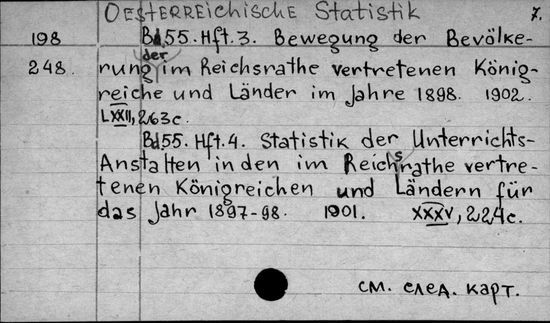 Oesterreichische Statistik 7.
198 Bd 55. Hft. 3. Bewegung der Bevölke-
248. rung der im Reichsrathe vertretenen König-
reiche und Länder im Jahre 1898. 1902.
LXXII, 263 c.
Bd 55. Hft. 4. Statistik der Unterrichts-
Anstalten in den im Reichsrathe vertre-
tenen Königreichen und Ländern für
das Jahr 1897-98. 1901. XXXV, 224 c.
см. след. карт.